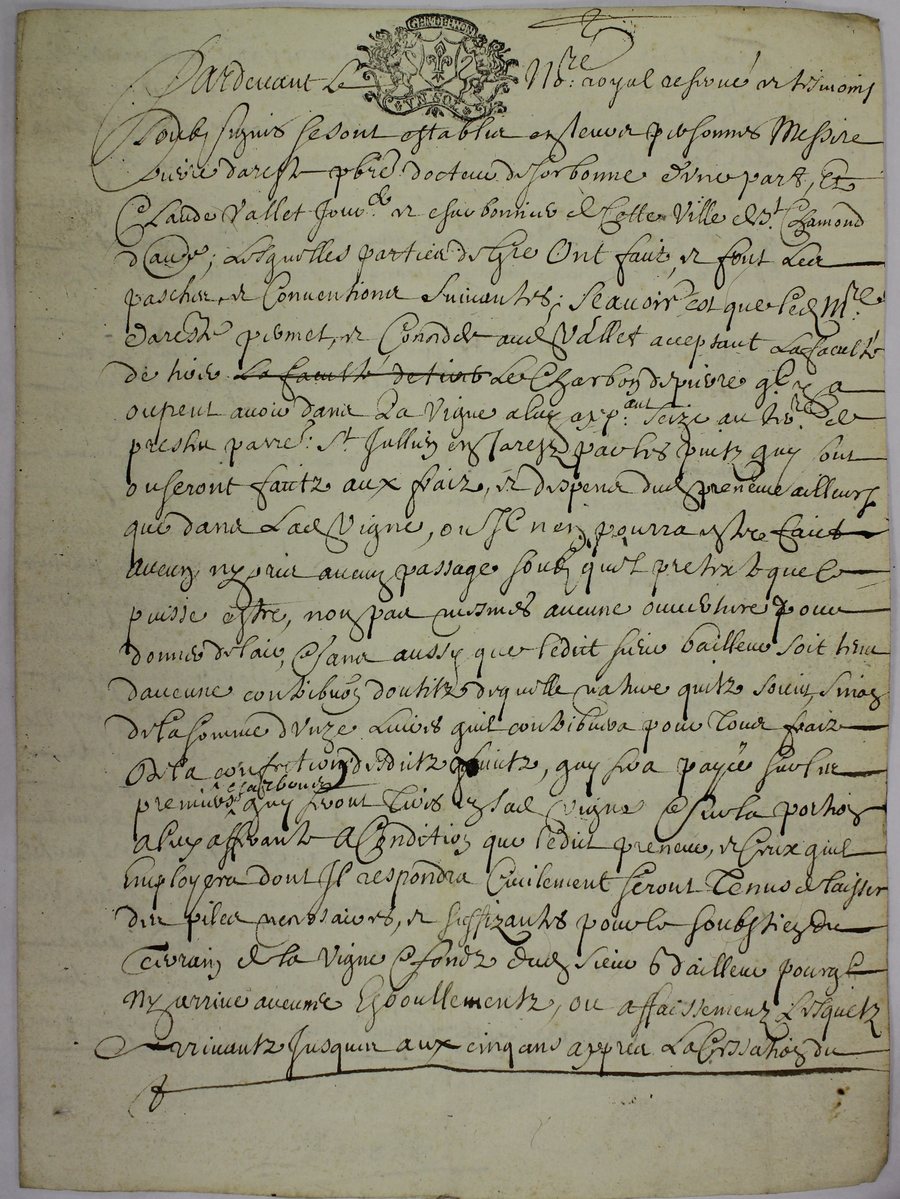 GEN DE LION
VN SOL
Pardevant Le No.re royal reservé et tesmoins
soubz signés se sont establis en leurs personnes Messire
pierre dareste pbre docteur de sorbonne d'vne part, Et
Claude Vallet Jour. et charbonnier de Cette Ville de St. Chamond
d'autre; Lesquelles parties de gre Ont fait, et font Les
pasches et Conventions Suivantes; Scavoir est que led. Mre.
dareste promet, et Concede aud. Vallet acceptant La faculté
de tirer La faculté de tirer Le Charbon de pierre qil y a
ou peut avoir dans La Vigne a luy app.ant size au terr.re de
parr.e St. Jullien en Jarest par les puitz quy sont
ou seront faitz aux fraiz, et despens dud. preneur ailleurs
que dans Lad. Vigne, ou Il n'en pourra estre fait
aucun ny pris aucun passage soubz quel pretexte que ce
puisse estre, non pas mesmes aucune ouverture pour
donner de l'air, Sans aussy que ledict sieur bailleur soit tenu
d'aucune contribu.on d'outilz de quelle nature quilz soient sinon
de la somme d'vnze Livres quil contribuera pour tous fraiz
De la confection desditz puitz, quy sera payée sur les
premiers charbons quy seront Tirés en lad. Vigne Et sur la portion
a luy afferante A Condition que ledict preneur, et Ceux quil
Employera dont Il respondra Civilement seront Tenus de laisser
des piles necessaires, et suffizantes pour le soubstien du
Terrain de la Vigne & fondz dud. sieur bailleur pour qil
Ny arrive aucuns Esboullementz, ou affaissementz Lesquelz
Arrivantz Jusques aux cinq ans appres La Cessation du